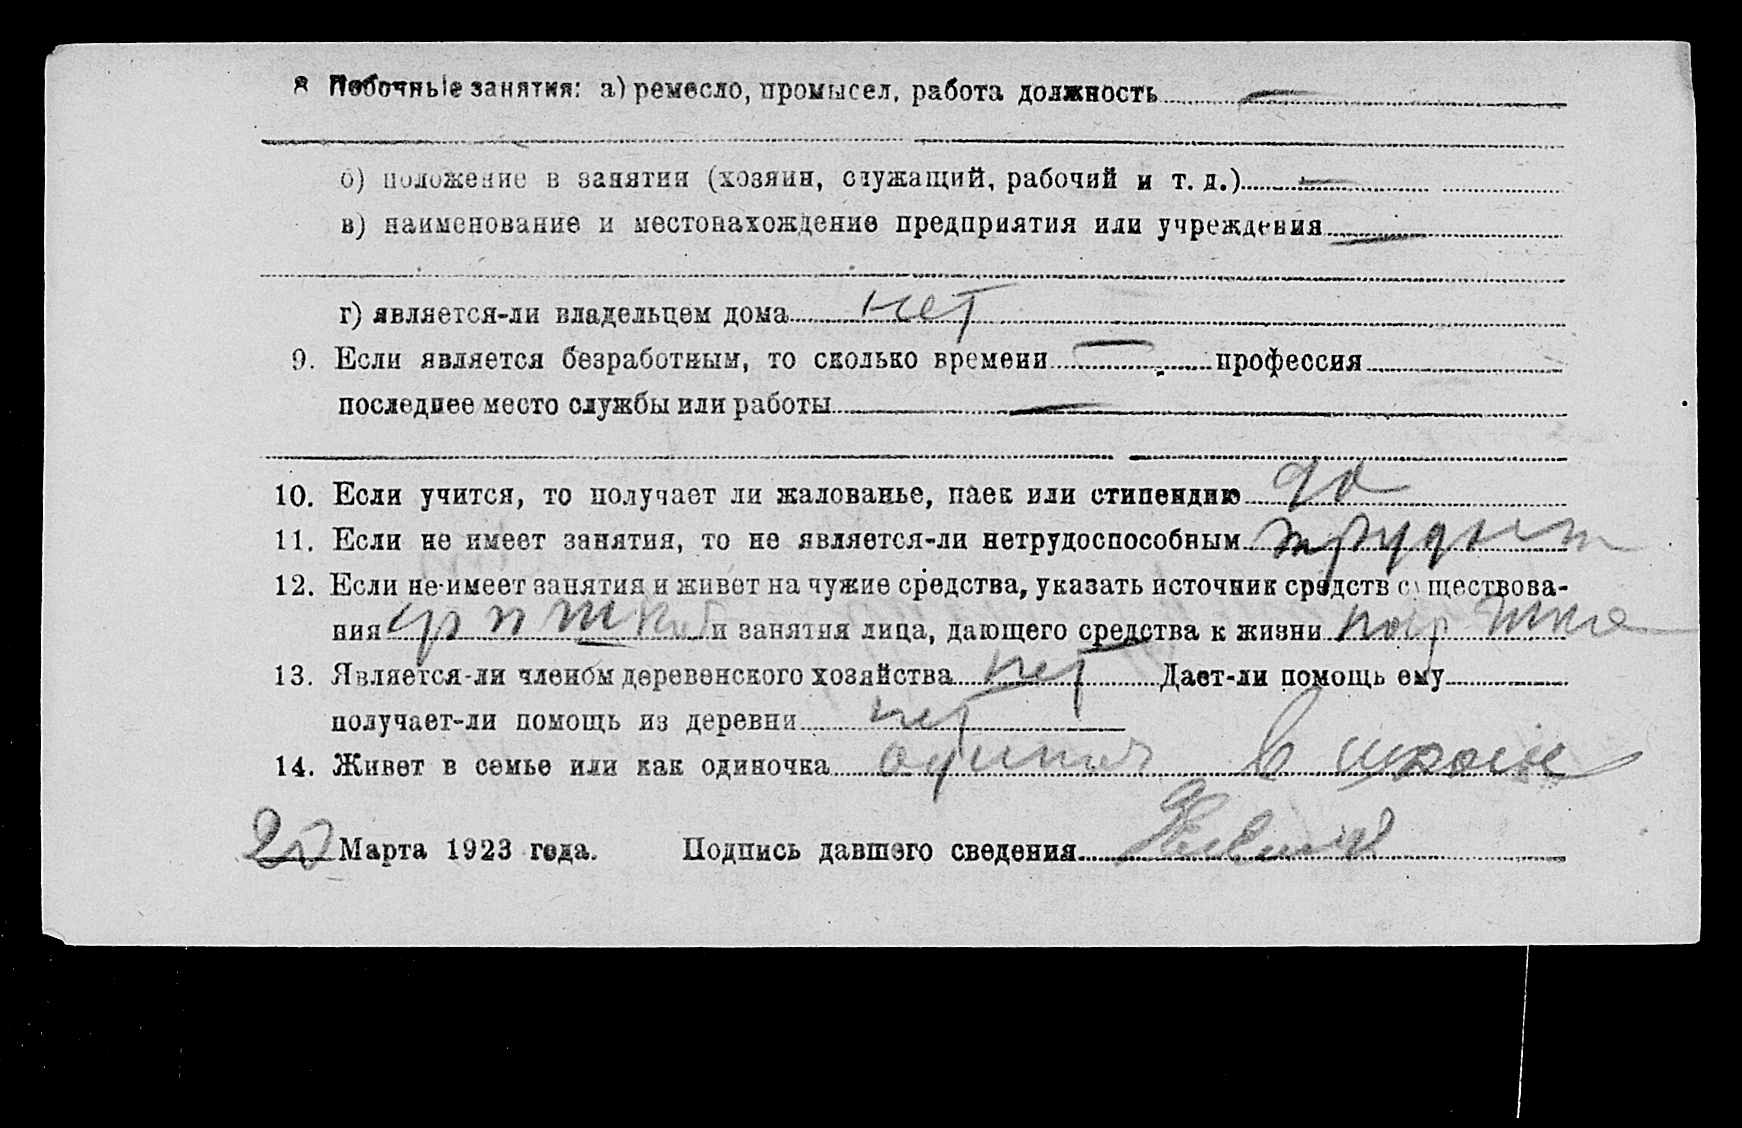 8 Побочные занятия: а) ремесло, промысел, работа должность —
б) положение в занятии (хозяин, служащий, рабочий и т. д.) —
в) наименование и местонахождение предприятия или учреждения —
г) является-ли владельцем дома нет
9. Если является безработным, то сколько времени — профессия
последнее место службы или работы —
10. Если учится, то получает ли жалованье, паек или стипендию да
11. Если не имеет занятия, то не является-ли нетрудоспособным
12. Если не имеет занятия и живет на чужие средства, указать источник средств существова-
ния и занятия лица, дающего средства к жизни
13. Является-ли членом деревенского хозяйства нет Дает-ли помощь ему
получает-ли помощь из деревни нет
14. Живет в семье или как одиночка в
Марта 1923 года. Подпись давшего сведения